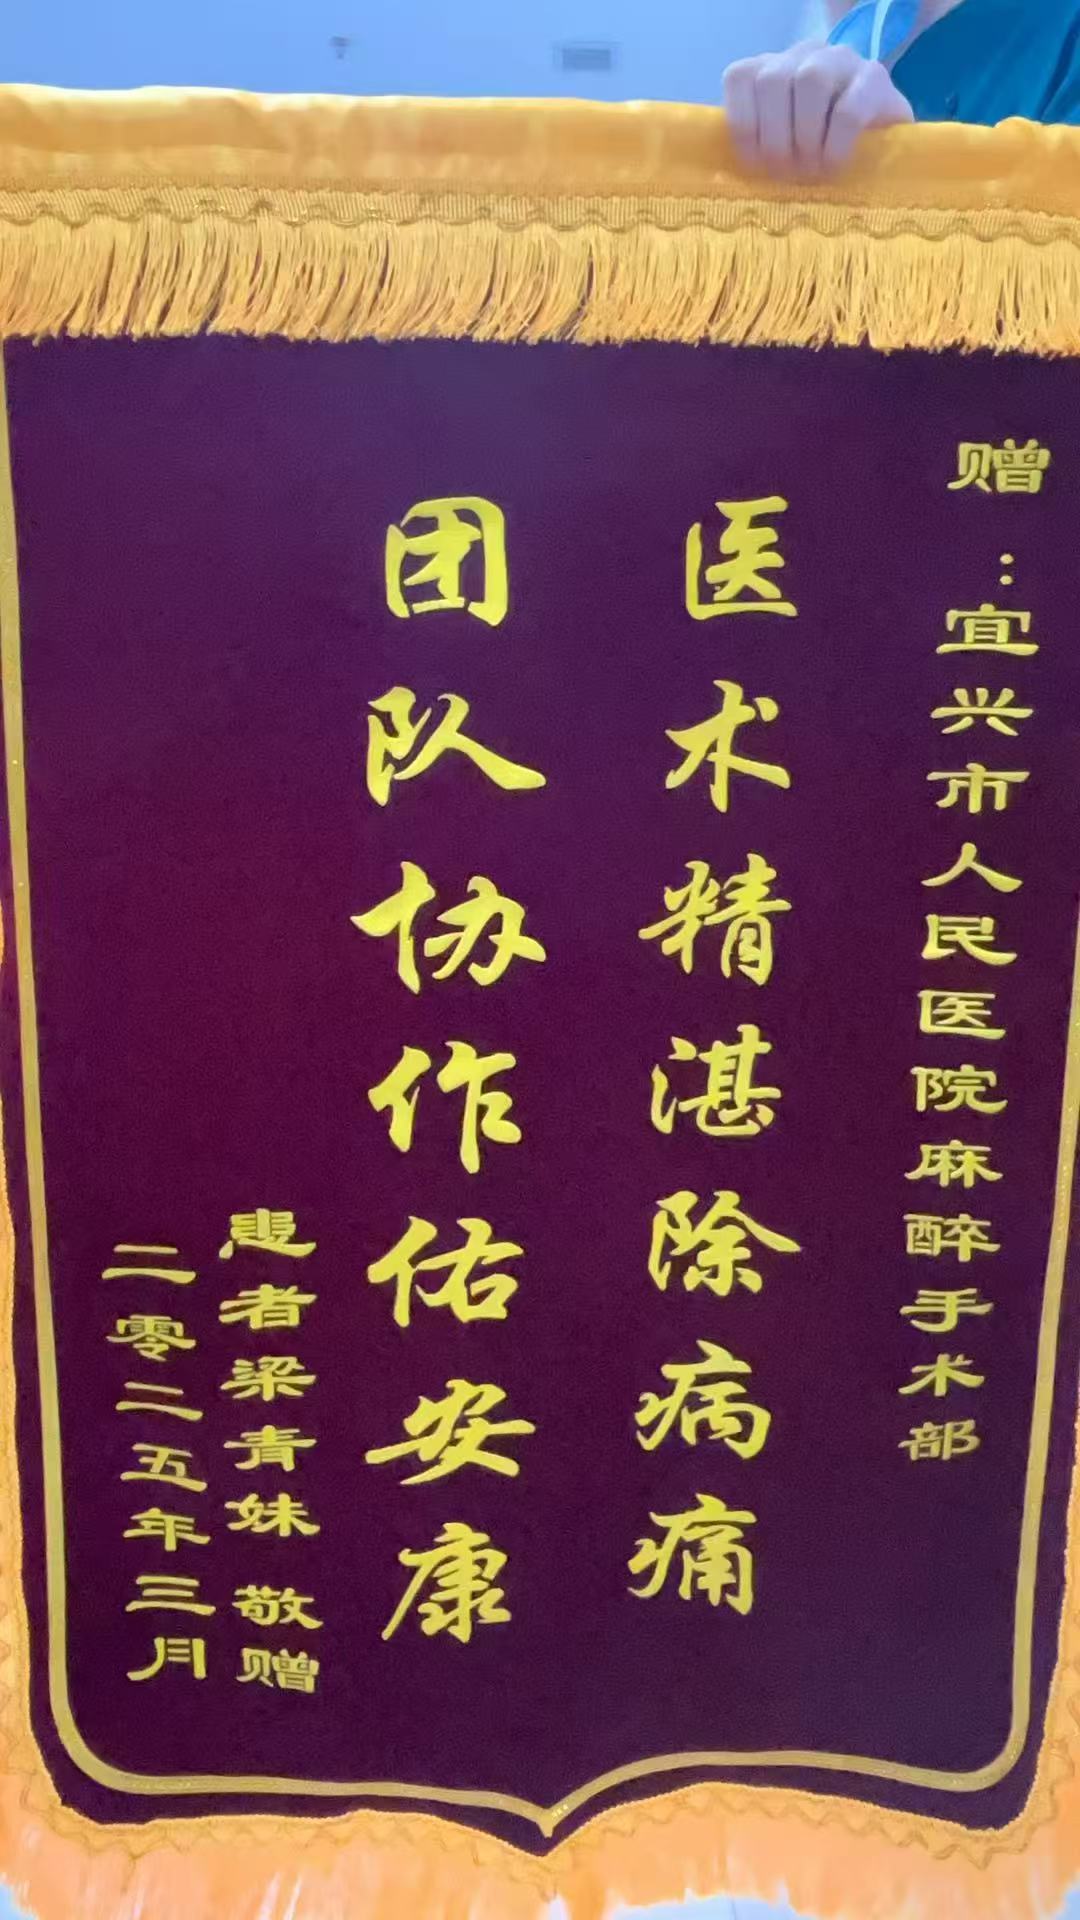 赠：宜兴市人民医院麻醉手术部
医术精湛除病痛
团队协作佑安康
患者梁青妹 敬赠
二零二五年三月